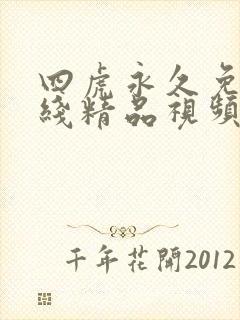 四虎永久免
綫精品視頻
千年花開2012